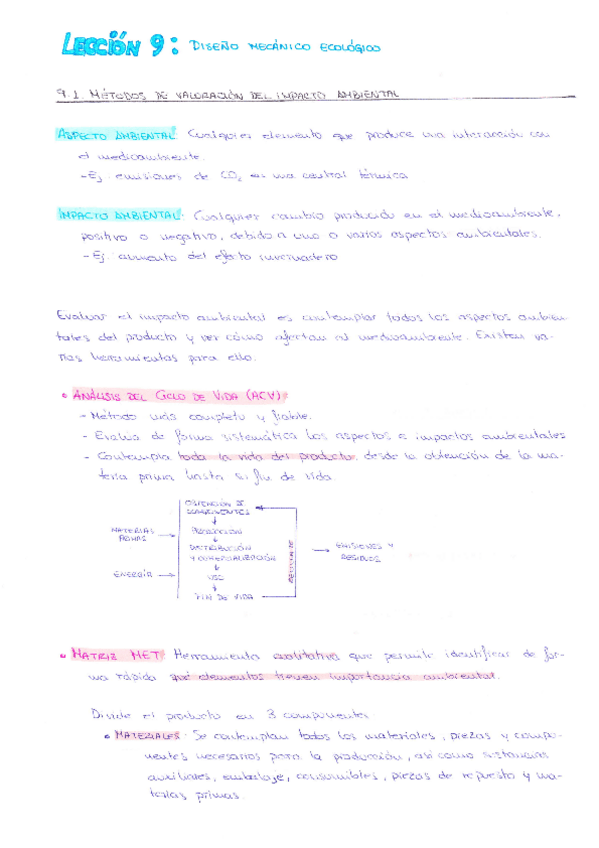 LECCIÓN 9: DISEÑO MECÁNICO ECOLÓGICO
9.1. MÉTODOS DE VALORACIÓN DEL IMPACTO AMBIENTAL
ASPECTO AMBIENTAL: Cualquier elemento que produce una interacción con
el medioambiente.
- Ej: emisiones de CO₂ en una central térmica
IMPACTO AMBIENTAL: Cualquier cambio producido en el medioambiente,
positivo o negativo, debido a uno o varios aspectos ambientales.
- Ej: aumento del efecto invernadero
Evaluar el impacto ambiental es contemplar todos los aspectos ambien-
tales del producto y ver cómo afectan al medioambiente. Existen va-
rias herramientas para ello.
• ANÁLISIS DEL CICLO DE VIDA (ACV):
- Método más completo y fiable.
- Evalua de forma sistemática los aspectos e impactos ambientales
- Contempla toda la vida del producto, desde la obtención de la ma-
teria prima hasta su fin de vida
OBTENCIÓN DE
COMPONENTES
MATERIAS
PRIMAS
PRODUCCIÓN
DISTRIBUCIÓN
Y COMERCIALIZACIÓN
ENERGÍA
USO
FIN DE VIDA
RECICLAJE
EMISIONES Y
RESIDUOS
• MATRIZ MET: Herramienta cualitativa que permite identificar de for-
ma rápida qué elementos tienen importancia ambiental.
Divide el producto en 3 componentes
• MATERIALES: Se contemplan todos los materiales, piezas y compo-
nentes necesarios para la producción, así como sustancias
auxiliares, embalaje, consumibles, piezas de repuesto y ma-
terias primas.